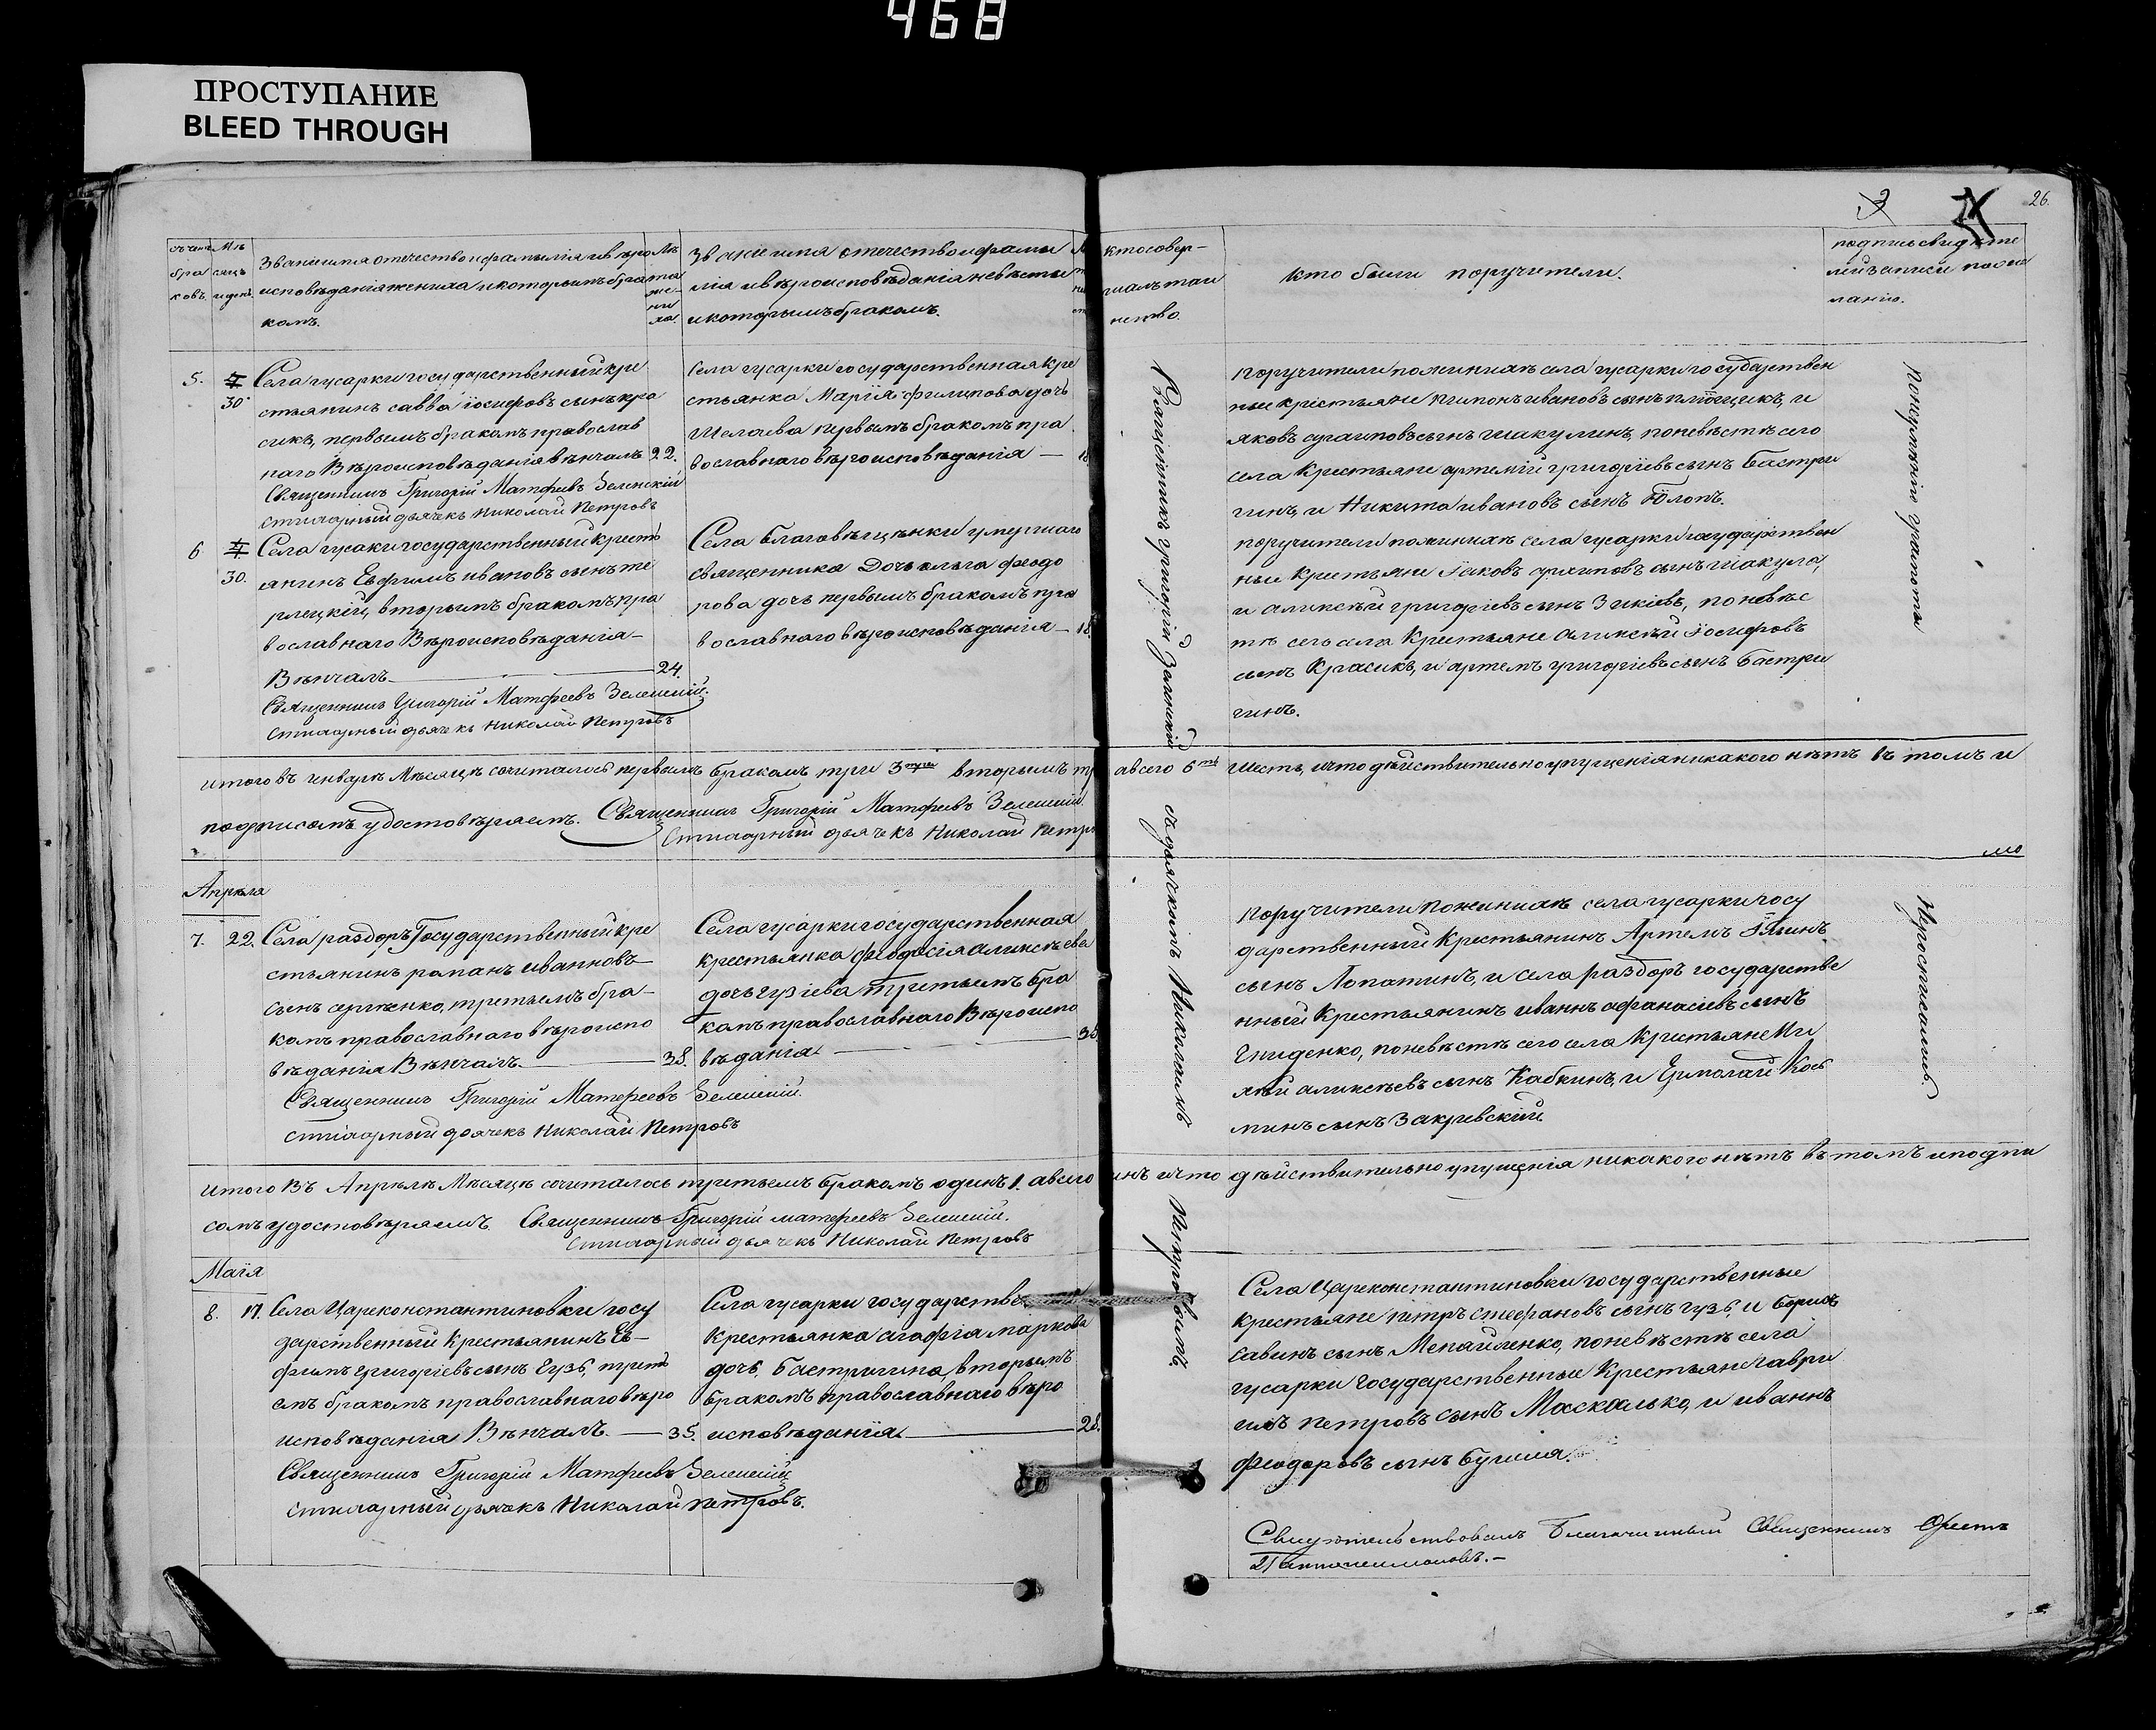 468
ПРОСТУПАНИЕ
BLEED THROUGH
26.
счетъ бра ковъ.
Мѣ сяцъ и день
Званiе имя отечество и фамилiя и вѣро
исповѣданiя жениха и которымъ бра
комъ.
Лѣ та же ни ха.
Званiе имя отечество и фами
лiя и вѣроисповѣданiя невѣсты
и которымъ бракомъ.
кто совер-
шалъ таи
нство.
кто были поручители.
подпись свидѣте
лей записи по же
ланiю.
5.
30.
Села гусарки государственный кре
стьянинъ савва iосифовъ сынъ кра
сикъ, первымъ бракомъ православ
наго Вѣроисповѣданiя вѣнчалъ 22.
Священникъ Григорiй Матфеевъ Зеленскiй
Стихарный дьячекъ Николай Петровъ
Села гусарки государственная кре
стьянка Марiя филипова дочь
Шелаева первымъ бракомъ пра
вославнаго вѣроисповѣданiя — 18
поручители по женихѣ села гусарки государствен
ные крестьяне ивановъ сынъ и
яковъ сынъ шакулинъ, по невѣстѣ сего
села Крестьяне артемiй григорiевъ сынъ Бастры
гинъ, и Никита ивановъ сынъ
6
30.
Села гусаки государственный кресть
янинъ Евфимъ ивановъ сынъ те
рлецкiй, вторымъ бракомъ пра
вославнаго Вѣроисповѣданiя
Вѣнчалъ — 24.
Священникъ Григорiй Матфеевъ Зеленскiй.
Стихарный дьячекъ Николай Петровъ
Села благовѣщенки умершаго
священника Дочь ольга феодо
рова дочь первымъ бракомъ пра
вославнаго вѣроисповѣданiя — 18
поручители по женихѣ села гусарки государствен
ные Крестьяне Iаковъ сынъ шакула,
и алексѣй григорiевъ сынъ Зикiевъ, по невѣс
тѣ сего села Крестьяне алексѣй Iосифовъ
сынъ Красикъ, и артемъ григорiевъ сынъ Бастры
гинъ.
Священникъ григорiй Зеленскiй съ дьячкомъ Николаемъ Петровымъ.
По неумѣнiю грамоты
итого въ январѣ Мѣсяцѣ сочиталось первымъ бракомъ три 3 вторымъ авсего 6 Шесть, и что дѣйствительно упущенiя никакого нѣтъ въ томъ и
подписомъ удостовѣряемъ. Священникъ Григорiй Матфеевъ Зеленскiй
Стихарный дьячекъ Николай Петр
Апрѣля
7. 22.
Села раздоръ Государственный кре
стьянинъ раманъ иванновъ
сынъ сергѣенко, третьемъ бра-
комъ православнаго вѣроиспо
вѣданiя Вѣнчалъ. — 38.
Священникъ Григорiй Матфеевъ Зеленскiй.
стихарный дьячекъ Николай Петровъ
Села гусарки государственная
крестьянка феодосiя алексѣева
дочь гузiева третьемъ бра
комъ православнаго Вѣроиспо
вѣданiя — 38
поручители по женихѣ села гусарки госу
дарственный Крестьянинъ Артемъ
сынъ Лопатинъ, и села раздоръ государстве
нный Крестьянинъ иваннъ афанасiевъ сынъ
Гниденко, по невѣстѣ сего села Крестьяне Ми
хѣй алексѣевъ сынъ Кабкинъ, и Ермолай Кось
минъ сынъ Закревскiй.
итого Въ Апрѣлѣ Мѣсяцѣ сочиталось третьемъ бракомъ одинъ 1. авсего инъ и что дѣйствительно упущенiя никакого нѣтъ въ томъ и подпи
сомъ удостовѣряемъ Священникъ Григорiй матфеевъ Зеленскiй.
Стихарный дьячекъ Николай Петровъ
Маiя
8. 17.
Села Цареконстантиновки госу
дарственный Крестьянинъ Ев-
фимъ григорiевъ сынъ Гузь, треть
емъ бракомъ православнаго вѣро
исповѣданiя Вѣнчалъ. — 35.
Священникъ Григорiй Матфеевъ Зеленскiй
Стихарный дьячекъ Николай Петровъ.
Села гусарки государстве
Крестьянка агафiя маркова
дочь, Бастригина, вторымъ
бракомъ православнаго вѣро
исповѣданiя — 28.
Села Цареконстантиновки государственные
крестьяне петръ стефановъ сынъ гузь, и борисъ
савинъ сынъ Мепайленко, по невѣстѣ села
гусарки государственные Крестьяне гаври
илъ петровъ сынъ Маскалько, и иваннъ
феодоровъ сынъ бугила.
Свидѣтельствовалъ Благочинный Священникъ